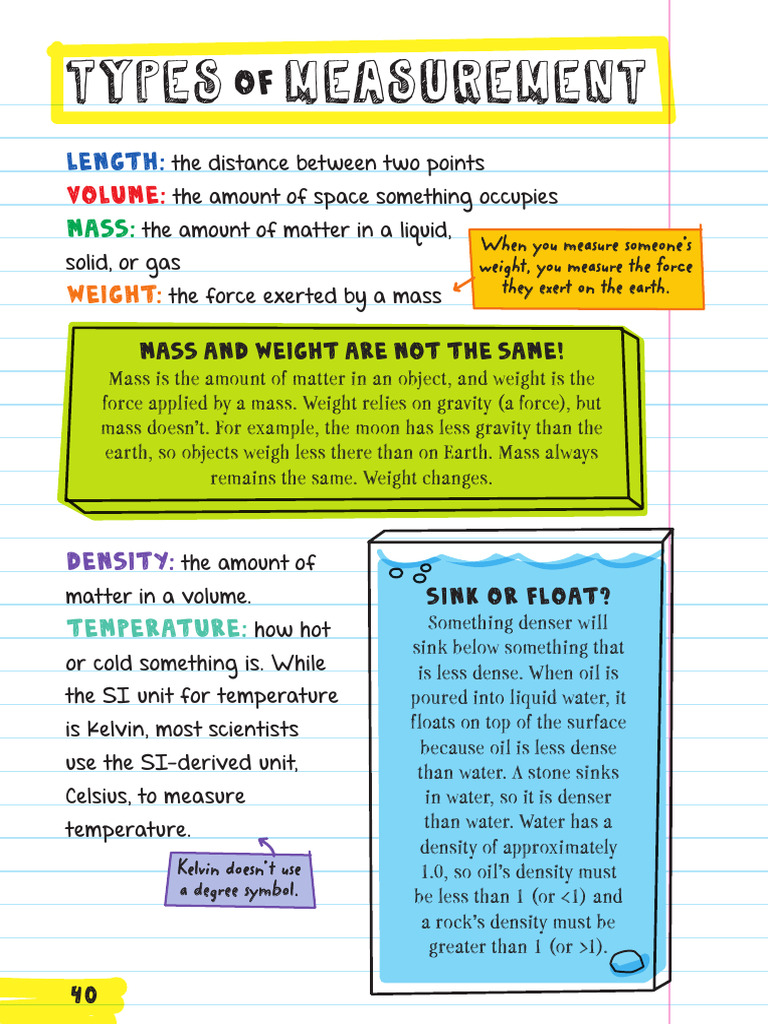 TYPES OF MEASUREMENT
LENGTH: the distance between two points
VOLUME: the amount of space something occupies
MASS: the amount of matter in a liquid,
solid, or gas
WEIGHT: the force exerted by a mass
When you measure someone's
weight, you measure the force
they exert on the earth.
MASS AND WEIGHT ARE NOT THE SAME!
Mass is the amount of matter in an object, and weight is the
force applied by a mass. Weight relies on gravity (a force), but
mass doesn't. For example, the moon has less gravity than the
earth, so objects weigh less there than on Earth. Mass always
remains the same. Weight changes.
DENSITY: the amount of
matter in a volume.
TEMPERATURE: how hot
or cold something is. While
the SI unit for temperature
is Kelvin, most scientists
use the SI-derived unit,
Celsius, to measure
temperature.
Kelvin doesn't use
a degree symbol.
SINK OR FLOAT?
Something denser will
sink below something that
is less dense. When oil is
poured into liquid water, it
floats on top of the surface
because oil is less dense
than water. A stone sinks
in water, so it is denser
than water. Water has a
density of approximately
1.0, so oil's density must
be less than 1 (or <1) and
a rock's density must be
greater than 1 (or >1).
40